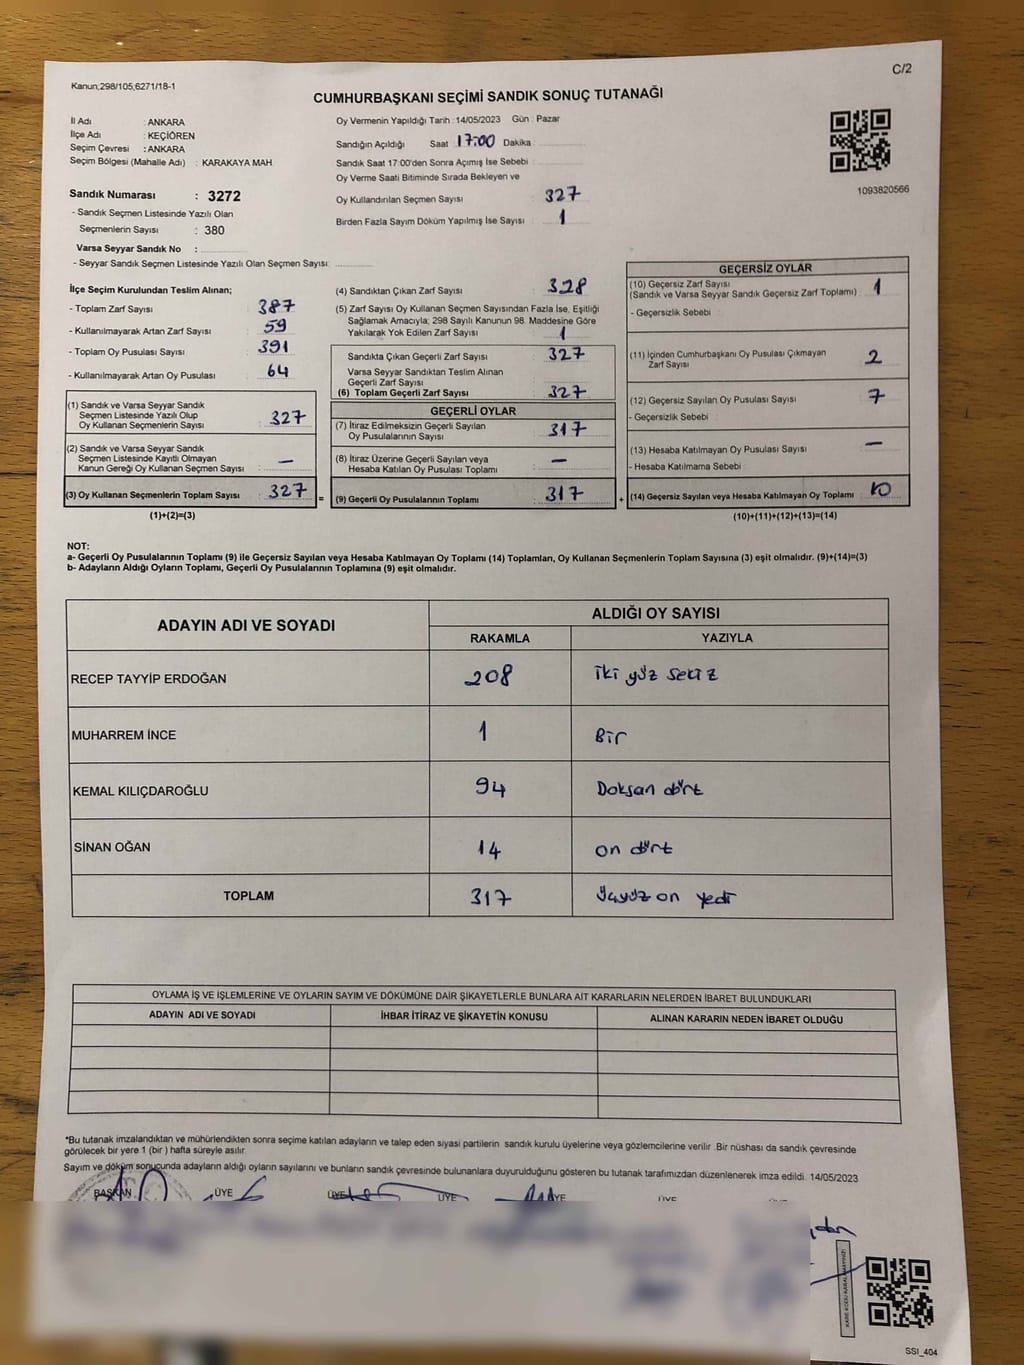 C/2
Kanun;298/105,6271/18-1
CUMHURBAŞKANI SEÇİMİ SANDIK SONUÇ TUTANAĞI
İl Adı : ANKARA
İlçe Adı : KEÇİÖREN
Seçim Çevresi : ANKARA
Seçim Bölgesi (Mahalle Adı) : KARAKAYA MAH.
Sandık Numarası : 3272
- Sandık Seçmen Listesinde Yazılı Olan
Seçmenlerin Sayısı : 380
Varsa Seyyar Sandık No :
- Seyyar Sandık Seçmen Listesinde Yazılı Olan Seçmen Sayısı:
Oy Vermenin Yapıldığı Tarih : 14/05/2023 Gün : Pazar
Sandığın Açıldığı Saat 17:00 Dakika :
Sandık Saat 17:00'den Sonra Açımış İse Sebebi :
Oy Verme Saati Bitiminde Sırada Bekleyen ve
Oy Kullandırılan Seçmen Sayısı : 327
Birden Fazla Sayım Döküm Yapılmış İse Sayısı : 1
1093820566
İlçe Seçim Kurulundan Teslim Alınan;
- Toplam Zarf Sayısı : 387
- Kullanılmayarak Artan Zarf Sayısı : 59
- Toplam Oy Pusulası Sayısı : 391
- Kullanılmayarak Artan Oy Pusulası : 64
(1) Sandık ve Varsa Seyyar Sandık
Seçmen Listesinde Yazılı Olup
Oy Kullanan Seçmenlerin Sayısı : 327
(2) Sandık ve Varsa Seyyar Sandık
Seçmen Listesinde Kayıtlı Olmayan
Kanun Gereği Oy Kullanan Seçmen Sayısı : —
(3) Oy Kullanan Seçmenlerin Toplam Sayısı : 327 =
(1)+(2)=(3)
(4) Sandıktan Çıkan Zarf Sayısı : 328
(5) Zarf Sayısı Oy Kullanan Seçmen Sayısından Fazla İse, Eşitliği
Sağlamak Amacıyla; 298 Sayılı Kanunun 98. Maddesine Göre
Yakılarak Yok Edilen Zarf Sayısı : 1
Sandıkta Çıkan Geçerli Zarf Sayısı : 327
Varsa Seyyar Sandıktan Teslim Alınan
Geçerli Zarf Sayısı :
(6) Toplam Geçerli Zarf Sayısı : 327
GEÇERLİ OYLAR
(7) İtiraz Edilmeksizin Geçerli Sayılan
Oy Pusulalarının Sayısı : 317
(8) İtiraz Üzerine Geçerli Sayılan veya
Hesaba Katılan Oy Pusulası Toplamı : —
(9) Geçerli Oy Pusulalarının Toplamı : 317 +
GEÇERSİZ OYLAR
(10) Geçersiz Zarf Sayısı
(Sandık ve Varsa Seyyar Sandık Geçersiz Zarf Toplamı) : 1
- Geçersizlik Sebebi :
(11) İçinden Cumhurbaşkanı Oy Pusulası Çıkmayan
Zarf Sayısı : 2
(12) Geçersiz Sayılan Oy Pusulası Sayısı : 7
- Geçersizlik Sebebi :
(13) Hesaba Katılmayan Oy Pusulası Sayısı : —
- Hesaba Katılmama Sebebi :
(14) Geçersiz Sayılan veya Hesaba Katılmayan Oy Toplamı : 10
(10)+(11)+(12)+(13)=(14)
NOT:
a- Geçerli Oy Pusulalarının Toplamı (9) ile Geçersiz Sayılan veya Hesaba Katılmayan Oy Toplamı (14) Toplamları, Oy Kullanan Seçmenlerin Toplam Sayısına (3) eşit olmalıdır. (9)+(14)=(3)
b- Adayların Aldığı Oyların Toplamı, Geçerli Oy Pusulalarının Toplamına (9) eşit olmalıdır.
ADAYIN ADI VE SOYADI ALDIĞI OY SAYISI
RAKAMLA YAZIYLA
RECEP TAYYİP ERDOĞAN 208 iki yüz sekiz
MUHARREM İNCE 1 Bir
KEMAL KILIÇDAROĞLU 94 Doksan dört
SİNAN OĞAN 14 on dört
TOPLAM 317 üçyüz on yedi
OYLAMA İŞ VE İŞLEMLERİNE VE OYLARIN SAYIM VE DÖKÜMÜNE DAİR ŞİKAYETLERLE BUNLARA AİT KARARLARIN NELERDEN İBARET BULUNDUKLARI
ADAYIN ADI VE SOYADI İHBAR İTİRAZ VE ŞİKAYETİN KONUSU ALINAN KARARIN NEDEN İBARET OLDUĞU
*Bu tutanak imzalandıktan ve mühürlendikten sonra seçime katılan adayların ve talep eden siyasi partilerin sandık kurulu üyelerine veya gözlemcilerine verilir. Bir nüshası da sandık çevresinde
görülecek bir yere 1 (bir ) hafta süreyle asılır.
Sayım ve döküm sonucunda adayların aldığı oyların sayılarını ve bunların sandık çevresinde bulunanlara duyurulduğunu gösteren bu tutanak tarafımızdan düzenlenerek imza edildi. 14/05/2023
BAŞKAN ÜYE ÜYE ÜYE ÜYE ÜYE ÜYE
SSI_404